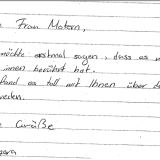 Frau Matern,
möchte erstmal sagen, dass es m
innen berührt hat.
fand es toll mit Ihnen über d
reden.
Grüße